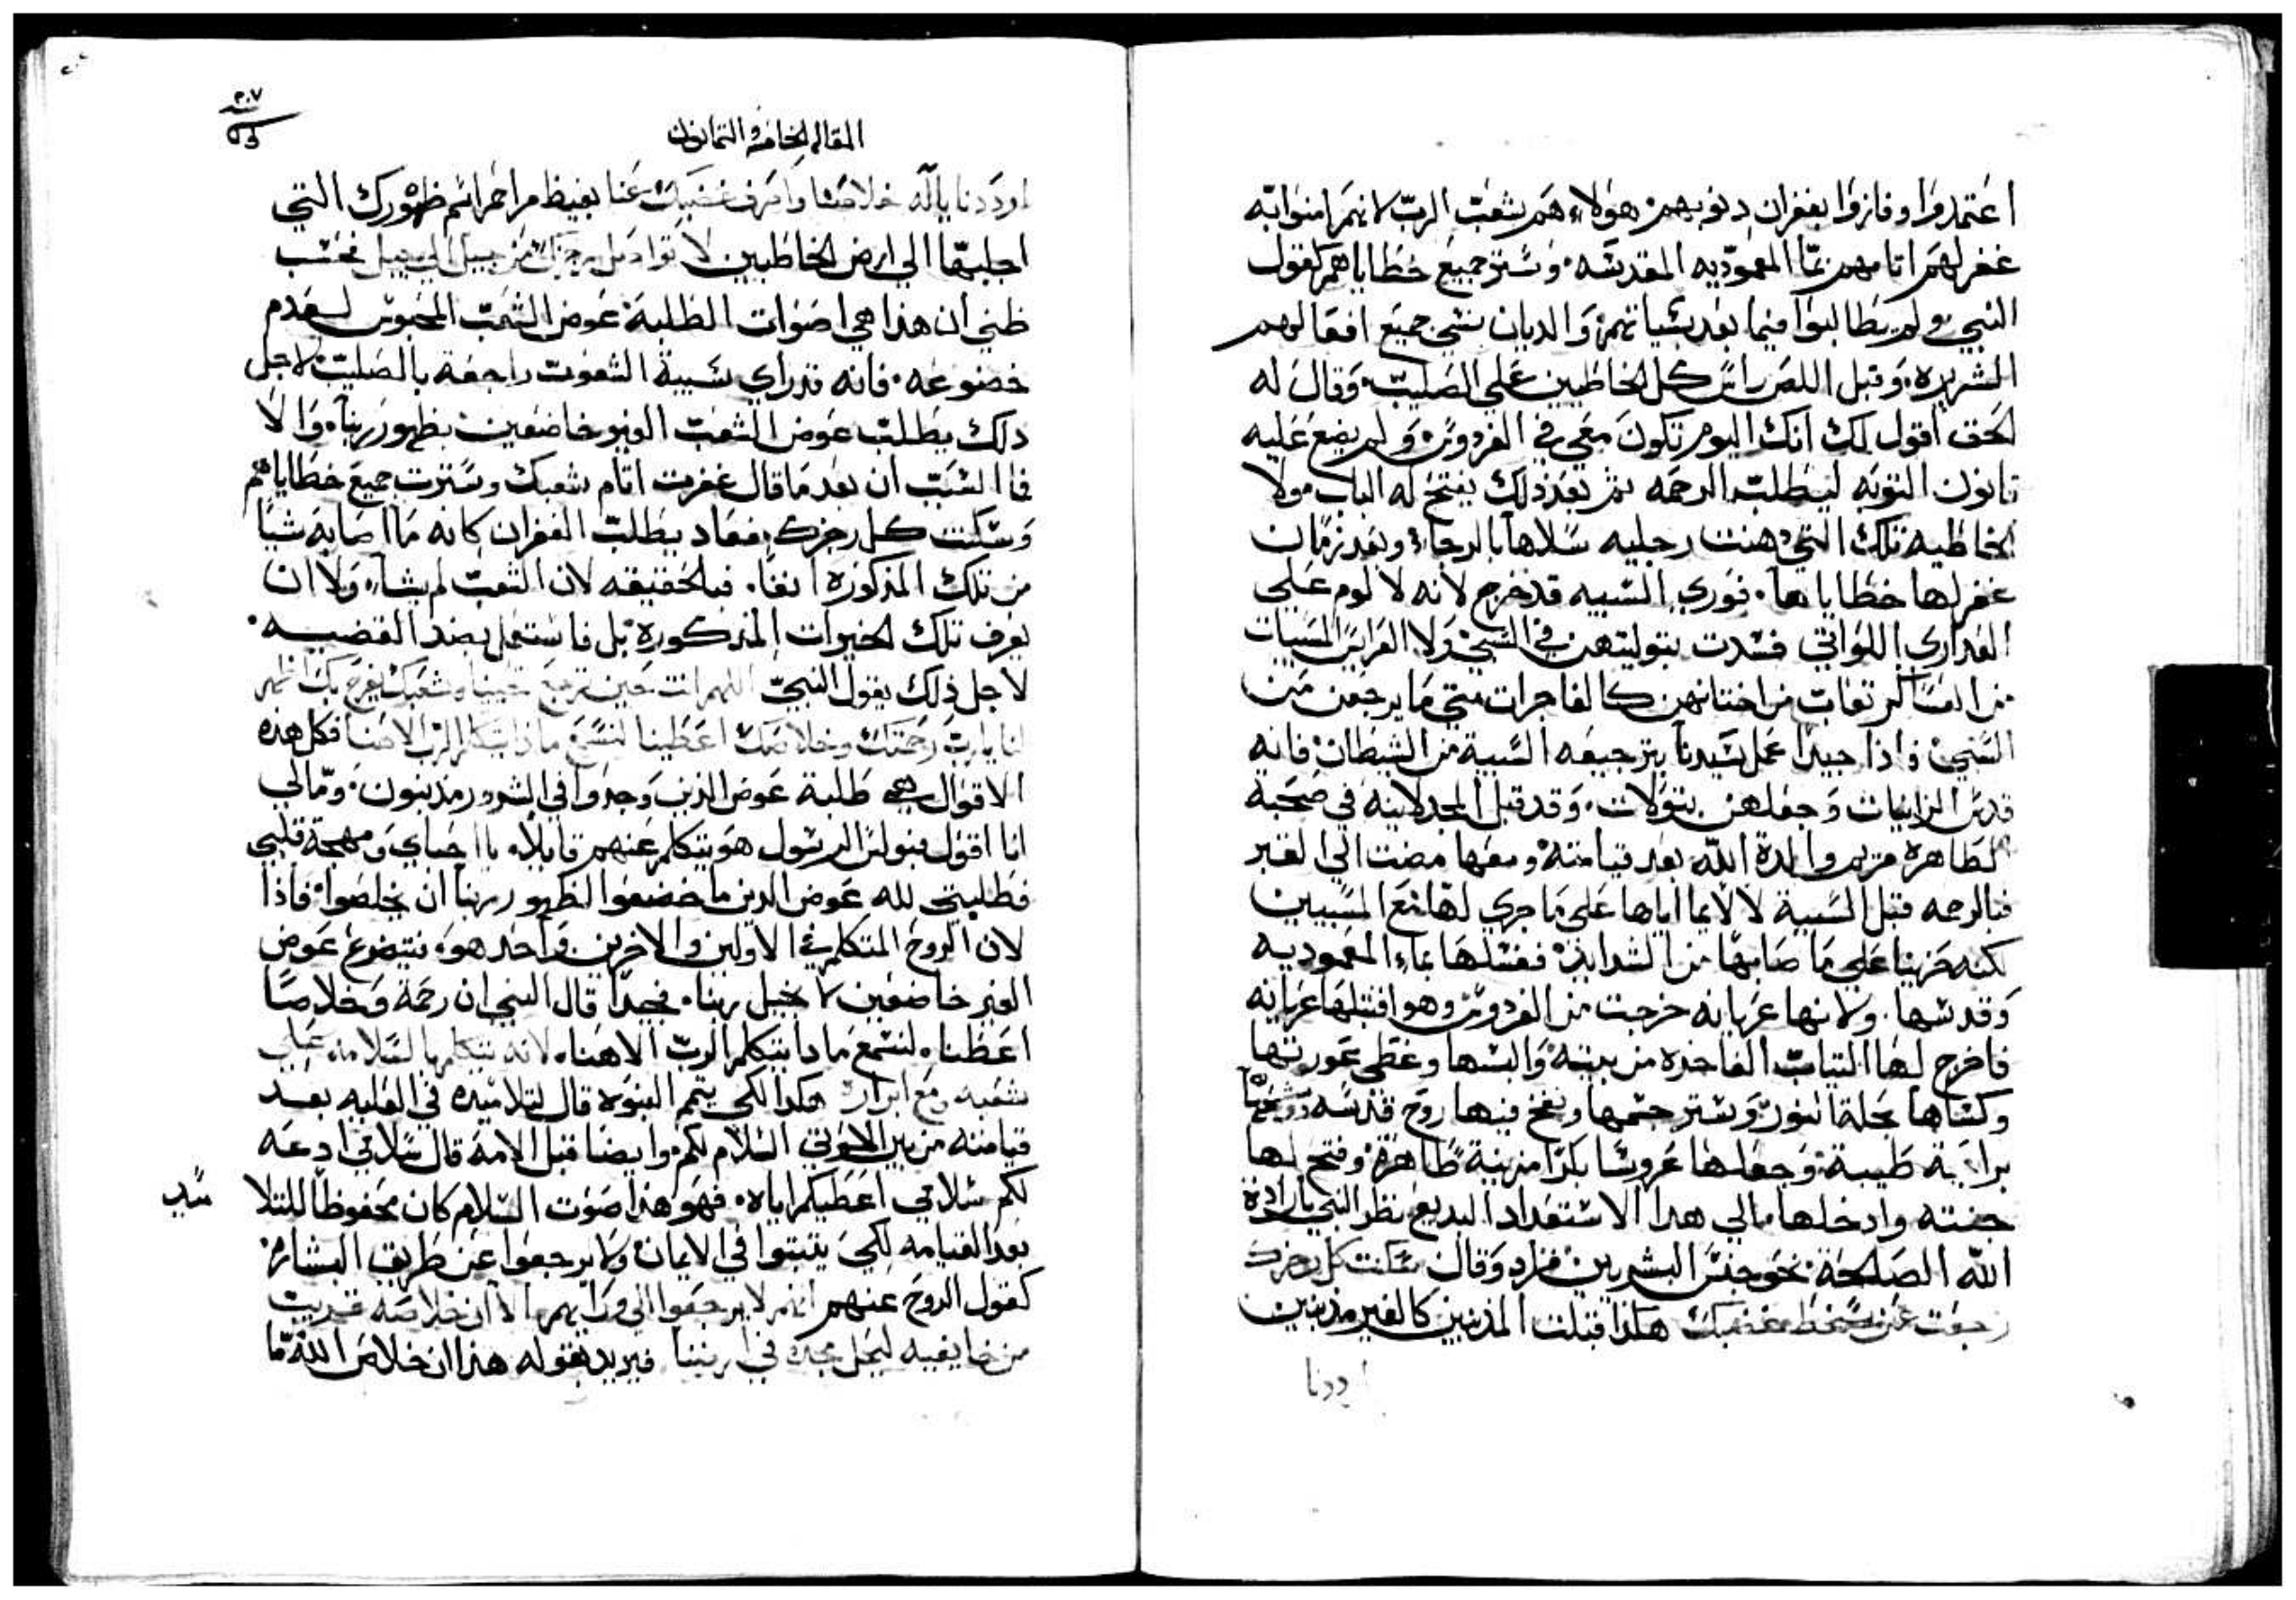 اعتمدوا وفازوا بغفران دنوبهم هولاء هم شعب الرب لانهم امنوا به
غفر لهم اتامهم بما المعموديه المقدسه وستر جميع خطاياهم كقول
النبي ولم يطالبوا فيما بعد بسياتهم والديان نسي جميع افعالهم
الشريره وقبل اللص راس كل الخاطيين على الصليب وقال له
الحق اقول لك انك اليوم تكون معي في الفردوس ولم يضع عليه
قانون التوبه ليطلب الرحمه ثم بعد ذلك يفتح له الباب ولا
الخاطيه تلك التي دهنت رجليه سلاها بالرجاء وبعد زمان
غفر لها خطاياها فوري السبيه قد خرج لانه لا لوم على
العداري اللواتي فسدت بتوليتهن في السبي ولا العرايس المسبيات
من من اختانهن كالفاجرات متي ما يرجعن من
السبي فاذا جيدا عمل سيدنا بترجيعه السبية من الشيطان فانه
قدس الزانيات وجعلهن بتولات وقد قبل المجدلانيه في صحبة
الطاهرة مريم والدة الله بعد قيامته ومعها مضت الى القبر
فبالرحمه قبل السبية لا لايما اياها على ما جرى لها مع المسبيين
لكنه حزينا على ما صابها من الشدايد فغسلها بماء المعموديه
وقدسها ولانها عريانه خرجت من الفردوس وهو اقتبلها عريانه
فاخرج لها التياب الفاخره من بيته والبسها وغطى عورتها
وكساها بحلة النور وستر جسمها ونفخ فيها روح قدسه
برايحة طيبة وجعلها عروسا بكرا مزينة طاهرة وفتح لها
جنته وادخلها الي هدا الاستعداد البديع نظر النبي بارادة
الله الصالحة نحو جنس البشريين فزاد وقال سكنت كل رجزك
رجعت عن سخط غضبك هكذا قبلت المذنبين كالغير مذنبين
ارددنا
٢٠٧
المقاله الخامسه والتمانون
ارددنا يا اله خلاصنا واصرف غضبك عنا بغيظ من اجرائم ظهورك التي
اجلبتها الي ارض الخاطيين لا تواصل رجزك من جيل الي جيل فحسب
ظني ان هذا هي اصوات الطلبة عوض الشعب المحبوس لعدم
خضوعه فانه قد راي سبية الشعوب راجعة بالصليب لاجل
دلك يطلب عوض الشعب الغير خاضعين بظهور ربنا والا
فما السبب ان بعد ما قال غفرت اتام شعبك وسترت جميع خطاياهم
وسكنت كل رجزك فعاد يطلب الغفران كانه ما اصابه شيا
من تلك المذكورة انفا فبالحقيقه لان الشعب لم يشا ولا ان
يعرف تلك الخيرات المذكورة بل فاستعمل بضد القضيه
لاجل ذلك يقول النبي اللهم انت حين ترجع تحيينا وشعبك يفرح بك اظهر
لنا يارب رحمتك وخلاصك اعطينا لنسمع ماذا يتكلم الرب الاهنا فكل هذه
الاقوال هي طلبة عوض الذين وجدوا في الشرور مذنبون ومالي
انا اقول فبولس الرسول هو يتكلم عنهم قايلا يا احباي ومهجة قلبي
فطلبتي لله عوض الدين ما خضعوا لظهور ربنا ان يخلصوا فاذا
لان الروح المتكلم في الاولين والاخرين واحد هو يتضرع عوض
الغير خاضعين لانجيل ربنا فجيدا قال النبي ان رحمة وخلاصا
اعطنا لنسمع مادا يتكلم الرب الاهنا لانه يتكلم بالسلامه على
شعبه ومع ابراره هكدا لكي يتم النبوه قال لتلاميده في العليه بعد
قيامته من بين الاموتي السلام لكم وايضا قبل الامه قال سلامي ادعه
لكم سلامي اعطيكم اياه فهو هذا صوت السلام كان محفوظا للتلا ميد
بعد القيامه لكي يثبتوا في الايمان ولا يرجعوا عن طريق البشارة
كقول الروح عنهم انهم لا يرجعوا الي ورايهم الا ان خلاصه قريب
من خايفيه ليحل مجده في ارضنا فيريد بقوله هذا ان خلاص الله ما